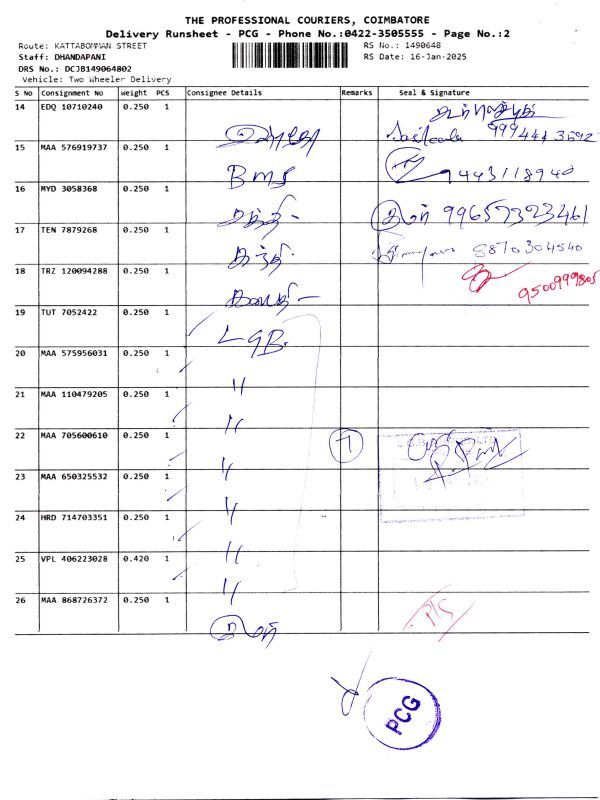 THE PROFESSIONAL COURIERS, COIMBATORE
Delivery Runsheet - PCG - Phone No.:0422-3505555 - Page No.:2
Route: KATTABOMMAN STREET
RS No.: 1490648
Staff: DHANDAPANI
RS Date: 16-Jan-2025
DRS No.: DCJB149064802
Vehicle: Two Wheeler Delivery
S No Consignment No Weight PCS Consignee Details Remarks Seal & Signature
14 EDQ 10710240 0.250 1
9994413592
15 MAA 576919737 0.250 1
BMS 9443118940
16 MYD 3058368 0.250 1
99657323461
17 TEN 7879268 0.250 1
5870304540
18 TRZ 120094288 0.250 1
9500999805
19 TUT 7052422 0.250 1
LGB.
20 MAA 575956031 0.250 1
"
21 MAA 110479205 0.250 1
"
22 MAA 705600610 0.250 1 7
"
23 MAA 650325532 0.250 1
"
24 HRD 714703351 0.250 1
"
25 VPL 406223028 0.420 1
"
26 MAA 868726372 0.250 1
PCG